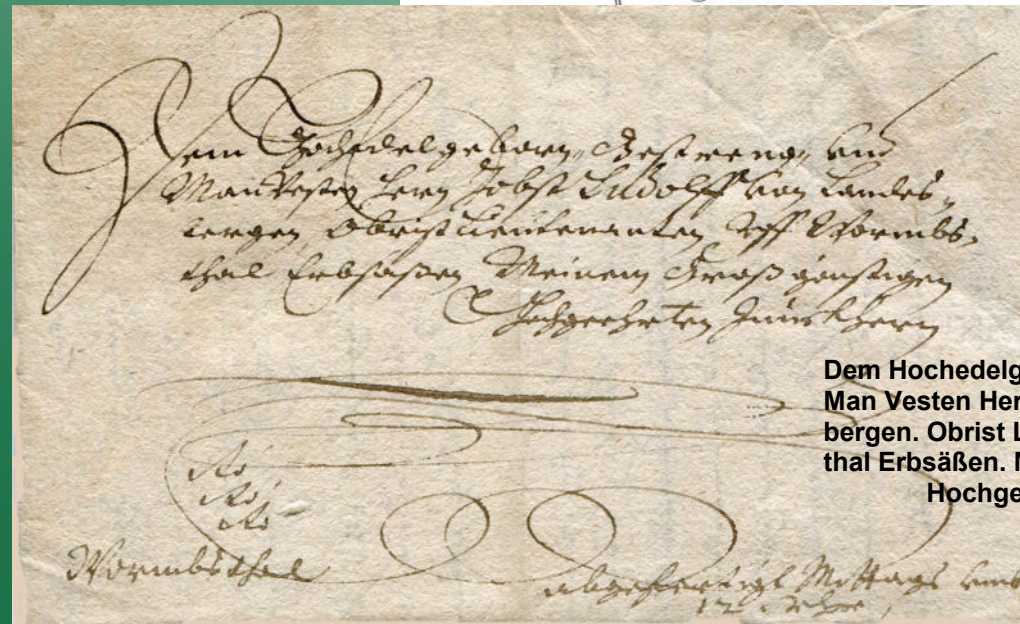 Dem Hochedelgeborn, Gestreng, und
Manvesten Hern Jobst Ludolff von Landes-
bergen, Obrist Lieutenanten Uff Wormbs-
thal Erbsäßen Meinem Groß günstigen
Hochgeehrten Junckhern
Dem Hochedelg
Man Vesten Her
bergen. Obrist L
thal Erbsäßen. M
Hochge
Cito
Cito
Cito
Wormbsthal
abgefertigt Mittags umb
12 Uhre